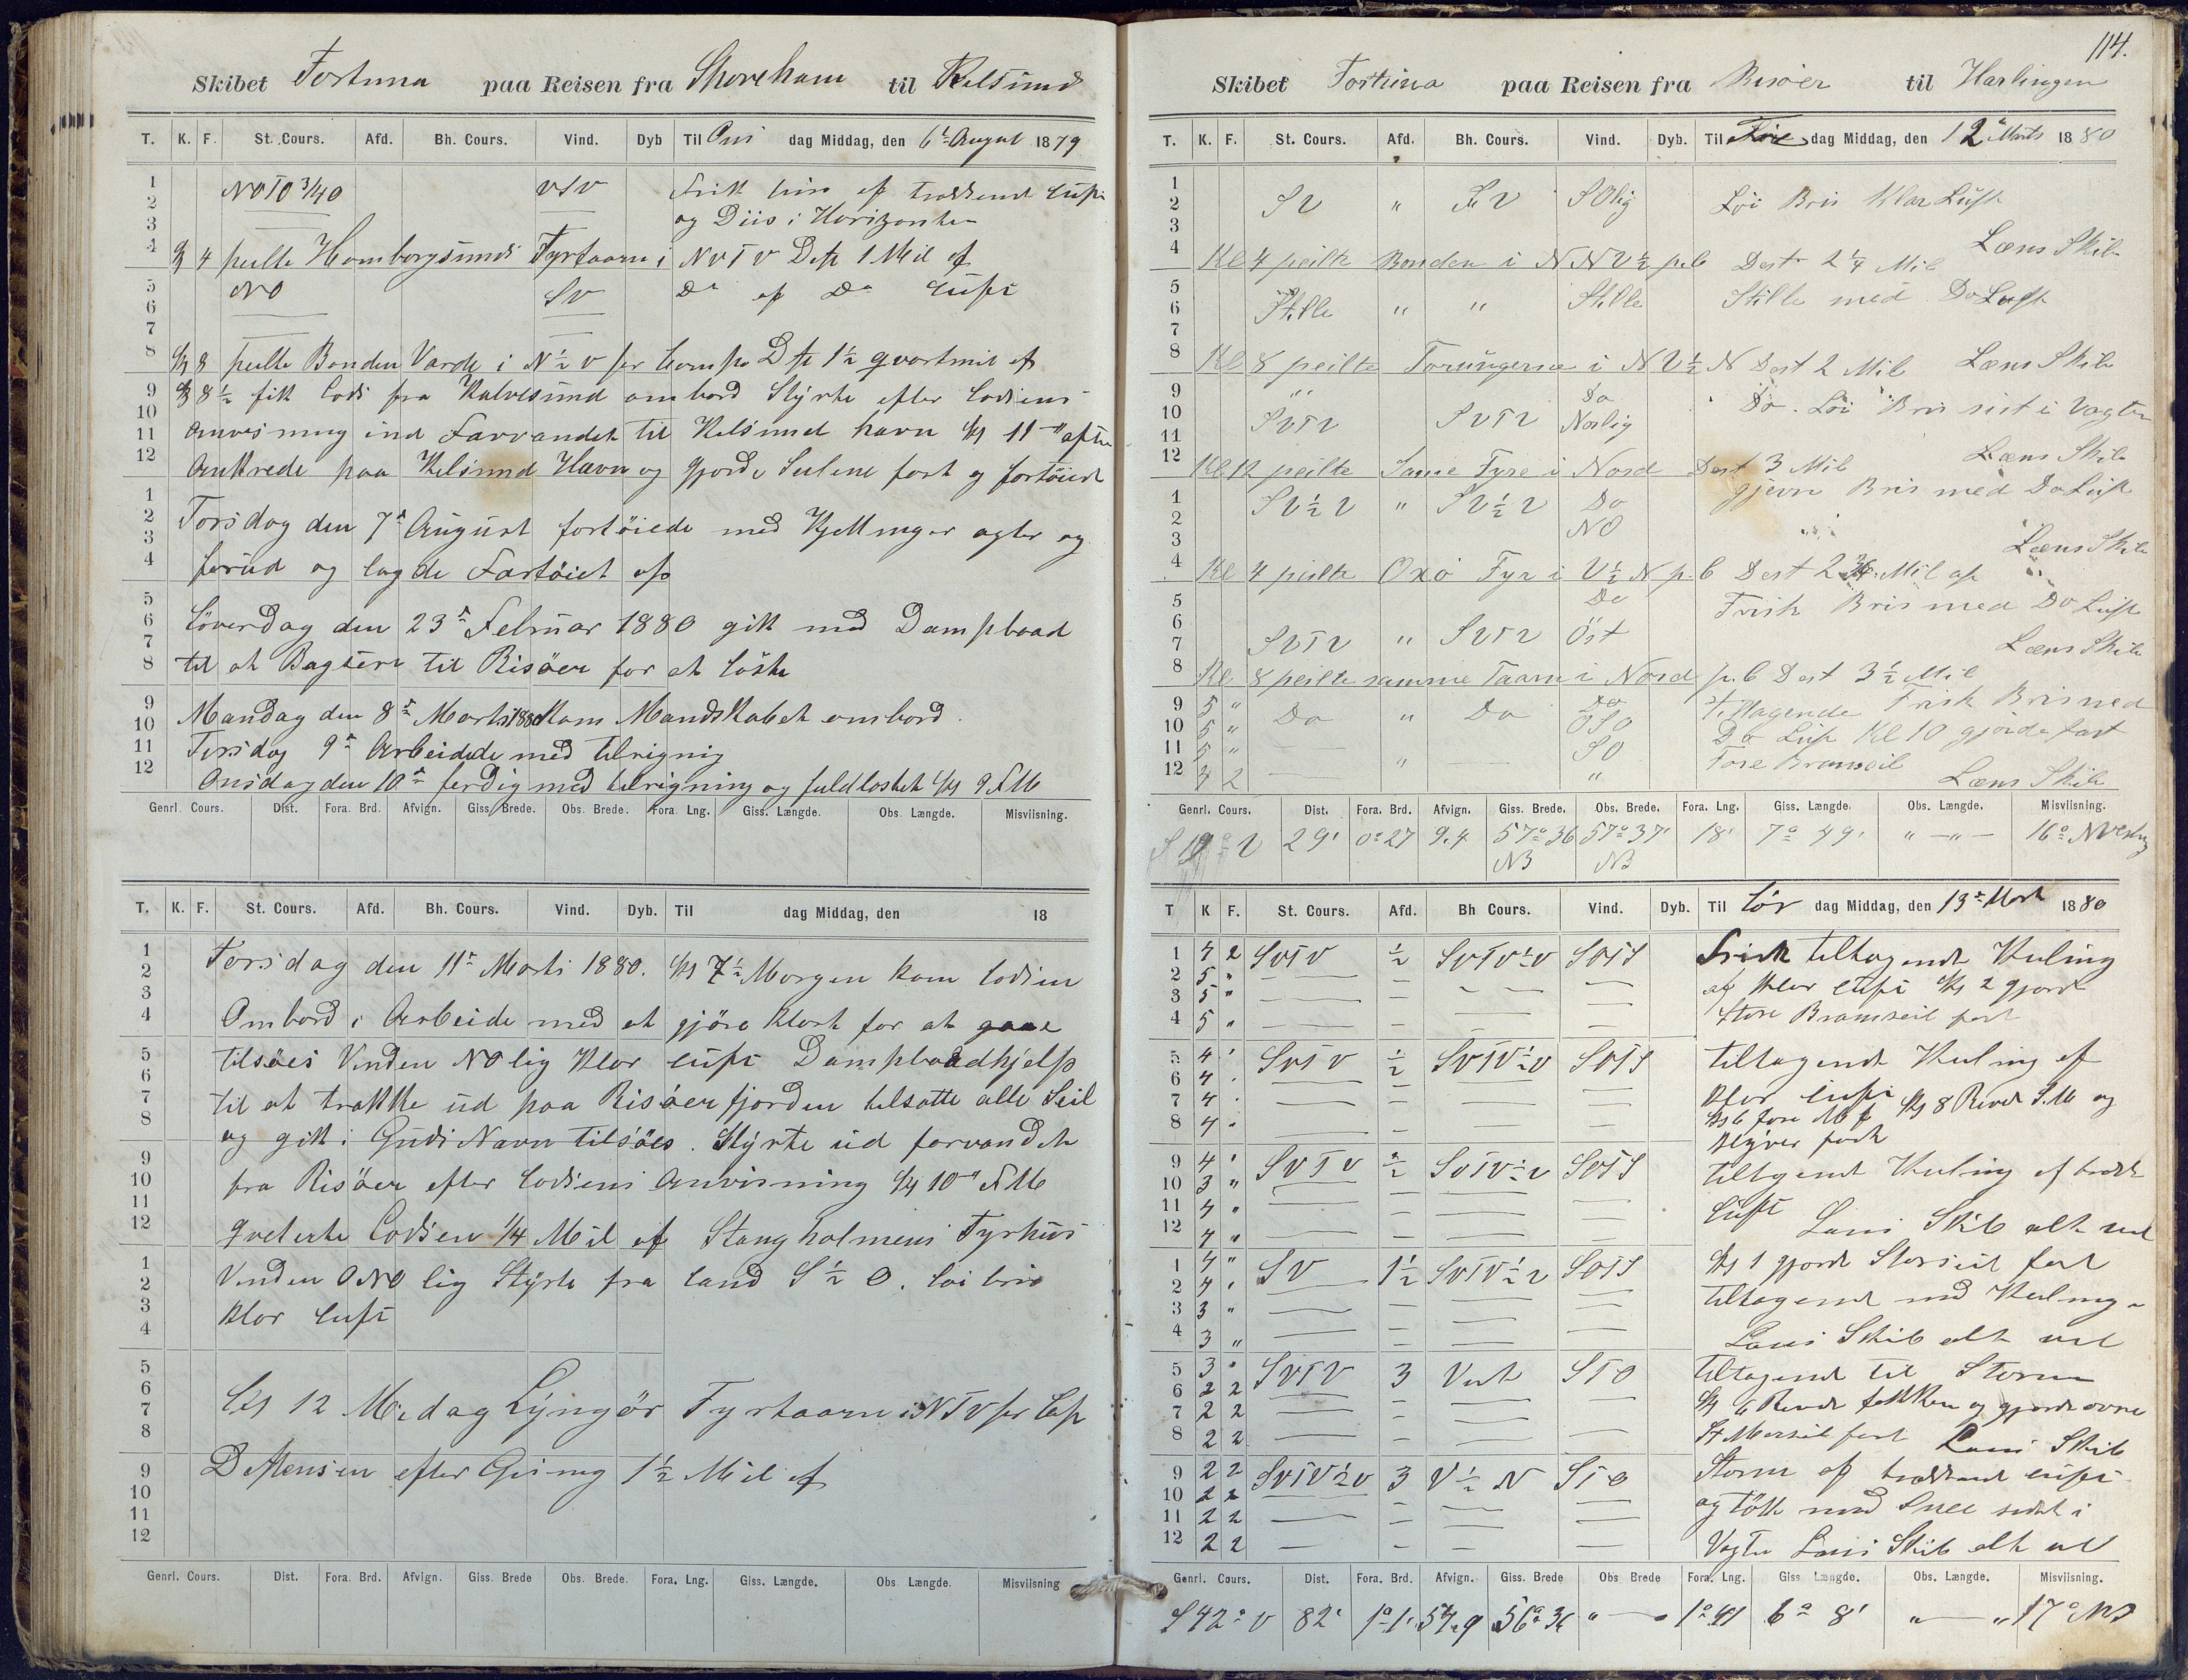 Skibet Fortuna paa Reisen fra Shoreham til Kelsund
T. K. F. St. Cours. Afd. Bh. Cours. Vind. Dyb Til Ons dag Middag, den 6te August 1879
1 NOTO 3/4 O VSV Frisk bris af trækkende Luft
2
3 og Diis i Horizonten
4 Kl 4 peilte Homborgsunds Fyrtaarn i NVTV Dist 1 Mil af
5 NO SV Do af Do Luft
6
7
8 Kl 8 peilte Bonden Varde i N ½ V per Comps Dst 1½ qvartmil af
9 Kl 8½ fik Lods fra Kalvesund ombord Styrte efter Lodsens
10
11 Anvisning ind Farvandet til Kelsund havn Kl 11 " aften
12 Ankrede paa Kelsund Havn og gjorde Seilene fast og fortøiet
1
2 Torsdag den 7de August fortøiede med Kjettinger agter og
3
4 forud og lagde Fartøiet op
5
6 Löverdag den 23de Februar 1880 gik med Dampbaad
7
8 til at Bagsere til Risöer for at Loste
9 Mandag den 8de Marts 1880 Kom Mandskabet ombord.
10
11 Tirsdag 9de Arbeidede med tilrigning
12 Onsdag den 10de ferdig med tilrigning og fuldlostet Kl 9 F M
Genrl. Cours. Dist. Fora. Brd. Afvign. Giss. Brede. Obs. Brede. Fora. Lng. Giss. Længde. Obs. Længde. Misviisning.
T. K. F. St. Cours. Afd. Bh. Cours. Vind. Dyb. Til dag Middag, den 18
1 Torsdag den 11te Marts 1880. Kl 7½ Morgen kom Lodsen
2
3 Ombord i Arbeide med at gjöre Klart for at gaae
4
5 tilsöes Vinden NO lig Klar Luft Dampbaadhjelp
6
7 til at trække ud paa Risöerfjorden tilsatte alle Seil
8 og gik i Guds Navn tilsöes. Styrte ud farvandet
9
10 fra Risöer efter Lodsens Anvisning Kl 10 " F M
11
12 qviterte Lodsen ¼ Mil af Stangholmens Fyrhus
1 Vinden ONO lig Styrte fra Land S ½ O. Löi bris
2
3 Klar Luft
4
5
6 Kl 12 Middag Lyngör Fyrtaarn i NTV per Cops
7
8
9 Distensen efter Gisning 1½ Mil af
10
11
12
Genrl. Cours. Dist. Fora. Brd. Afvign. Giss. Brede Obs. Brede. Fora. Lng. Giss. Længde. Obs. Længde. Misviisning
114.
Skibet Fortuna paa Reisen fra Risöer til Harlingen
T. K. F. St. Cours. Afd. Bh. Cours. Vind. Dyb. Til Fre dag Middag, den 12te Marts 1880
1
2 SV " SV SOlig Löi Bris Klar Luft
3 Læns Skib
4 Kl 4 peilte Bonden i NNV ½ p.C Dest 2¼ Mil
5
6 Stille " " Stille Stille med Do Luft
7
8 Kl 8 peilte Torungerne i NV ½ N Dest 2 Mil Læns Skib
9 " Do
10 SVTV SVTV Norlig Do. Löi Bris sist i Vagten
11
12 Kl 12 peilte Same Fyre i Nord Dest 3 Mil Læns Skib
1 SV ½ V " SV ½ V Do gjevn Bris med Do Luft
2 NO
3 Læns Skib
4 Kl 4 peilte Oxö Fyr i V ½ N p.C Dest 2¾ Mil af
5 Do Frisk Bris med Do Luft
6
7 SVTV " SVTV Öst Læns Skib
8 Kl 8 peilte samme Taarn i Nord p.C Dest 3½ Mil
9 5 " Do " Do Do Tiltagende Frisk Bris med
10 5 " OSO Do Luft Kl 10 gjorde fast
11 5 " SO Fore Bramseil
12 4 2 " " Læns Skib
Genrl. Cours. Dist. Fora. Brd. Afvign. Giss. Brede. Obs. Brede. Fora. Lng. Giss. Længde. Obs. Længde. Misviisning.
S 19° V 29' 0° 27 9.4 57° 36 NB 57° 37' NB 18' 7° 49' " — " — 16° NVestlig
T K F. St. Cours. Afd. Bh Cours. Vind. Dyb. Til Lör dag Middag, den 13de Marts 1880
1 4 2 SVTV ½ SVTV ½ V SOTS Frisk tiltagende Kuling
2 5 " af Klar Luft Kl 2 gjorde
3 5 "
4 5 " Store Bramseil fast
5 4 ' SVTV ½ SVTV ½ V SOTS tiltagende Kuling af
6 4 . Klar Luft
7 4 . Kl 6 fore Kl 8 Revet S.M og
8 4 . Klyver fast
9 4 ' SVTV ½ SVTV ½ V SOTS tiltagende Kuling af trækk
10 3 "
11 4 " Luft
12 4 " Læns Skib alt vel
1 4 " SV 1½ SVTV ½ V SOTS Kl 1 gjorde Storseil fast
2 4 ' tiltagende med Kuling
3 3 "
4 3 " Læns Skib alt vel
5 3 " SVTV 3 Vest STO tiltagende til Storm
6 2 2 Kl 6 Revet fokken og gjorde övre
7 2 2
8 2 2 St Merseil fast Læns Skib
9 2 2 SVTV ½ V 3 V ½ N STO Storm af trækkende Luft
10 2 2 og tökke med Snee sidst i
11 2 2
12 2 2 Vagten Læns Skib alt vel
Genrl. Cours. Dist. Fora. Brd. Afvign. Giss. Brede Obs Brede Fora. Lng. Giss Længde. Obs. Længde. Misviisning.
S 42° V 82' 1° 1' 54.9 56° 36 " — 1° 41 6° 8' " — " 17° NV